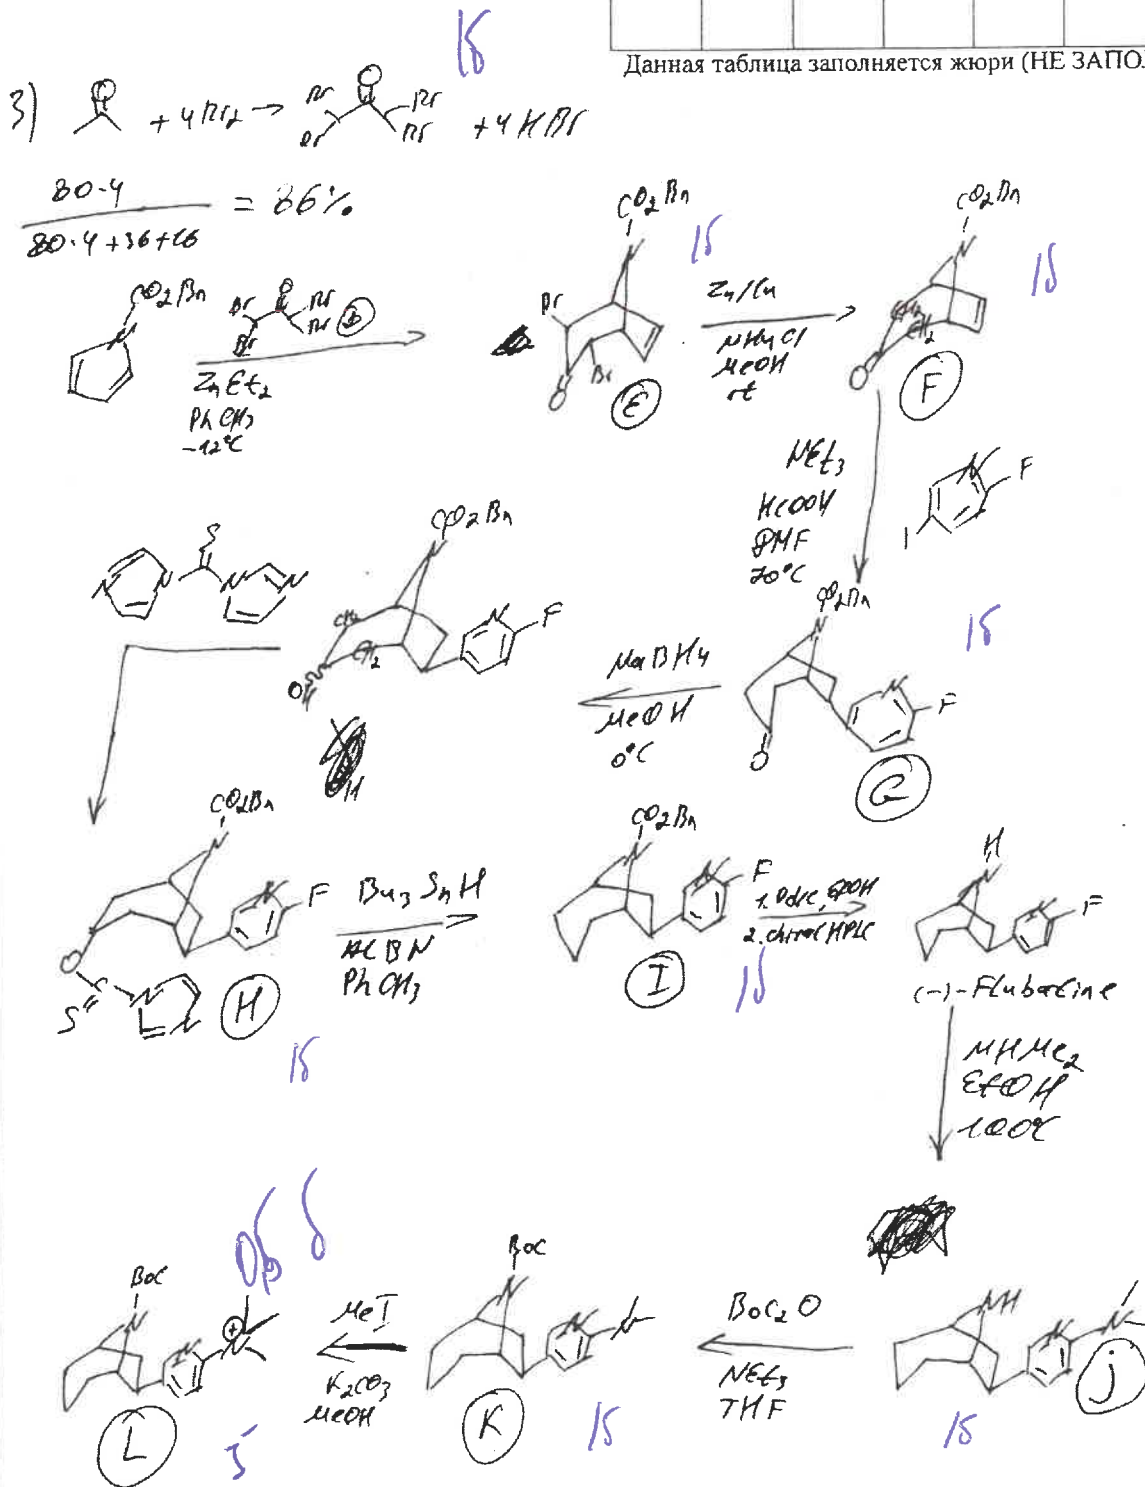 Данная таблица заполняется жюри (НЕ ЗАПО
1б
3)
O
+ 4Br₂ →
Br Br O Br Br
+ 4HBr
80·4
80·4+36+16
= 86%
CO₂Bn
N
Br Br O Br Br D
ZnEt₂
PhCH₃
-12°C
CO₂Bn
N
Br
Br
O
E
1б
Zn/Cu
NH₄Cl
MeOH
rt
CO₂Bn
N
CH₂
CH₂
O
F
1б
NEt₃
HCOOH
DMF
70°C
N F
I
CO₂Bn
N
N F
O
G
1б
NaBH₄
MeOH
0°C
CO₂Bn
N
CH₂
CH₂
N F
O
H
S
N N N N
CO₂Bn
N
N F
O
S N
N
H
1б
Bu₃SnH
ACBN
PhCH₃
CO₂Bn
N
N F
I
1б
1. Pd/C, EtOH
2. chiral HPLC
H
N
N F
(-)-Flubatine
NHMe₂
EtOH
100°C
NH
N N
J
1б
Boc₂O
NEt₃
THF
Boc
N
N N
K
1б
MeI
K₂CO₃
MeOH
Boc
N
N N
+
L
0б